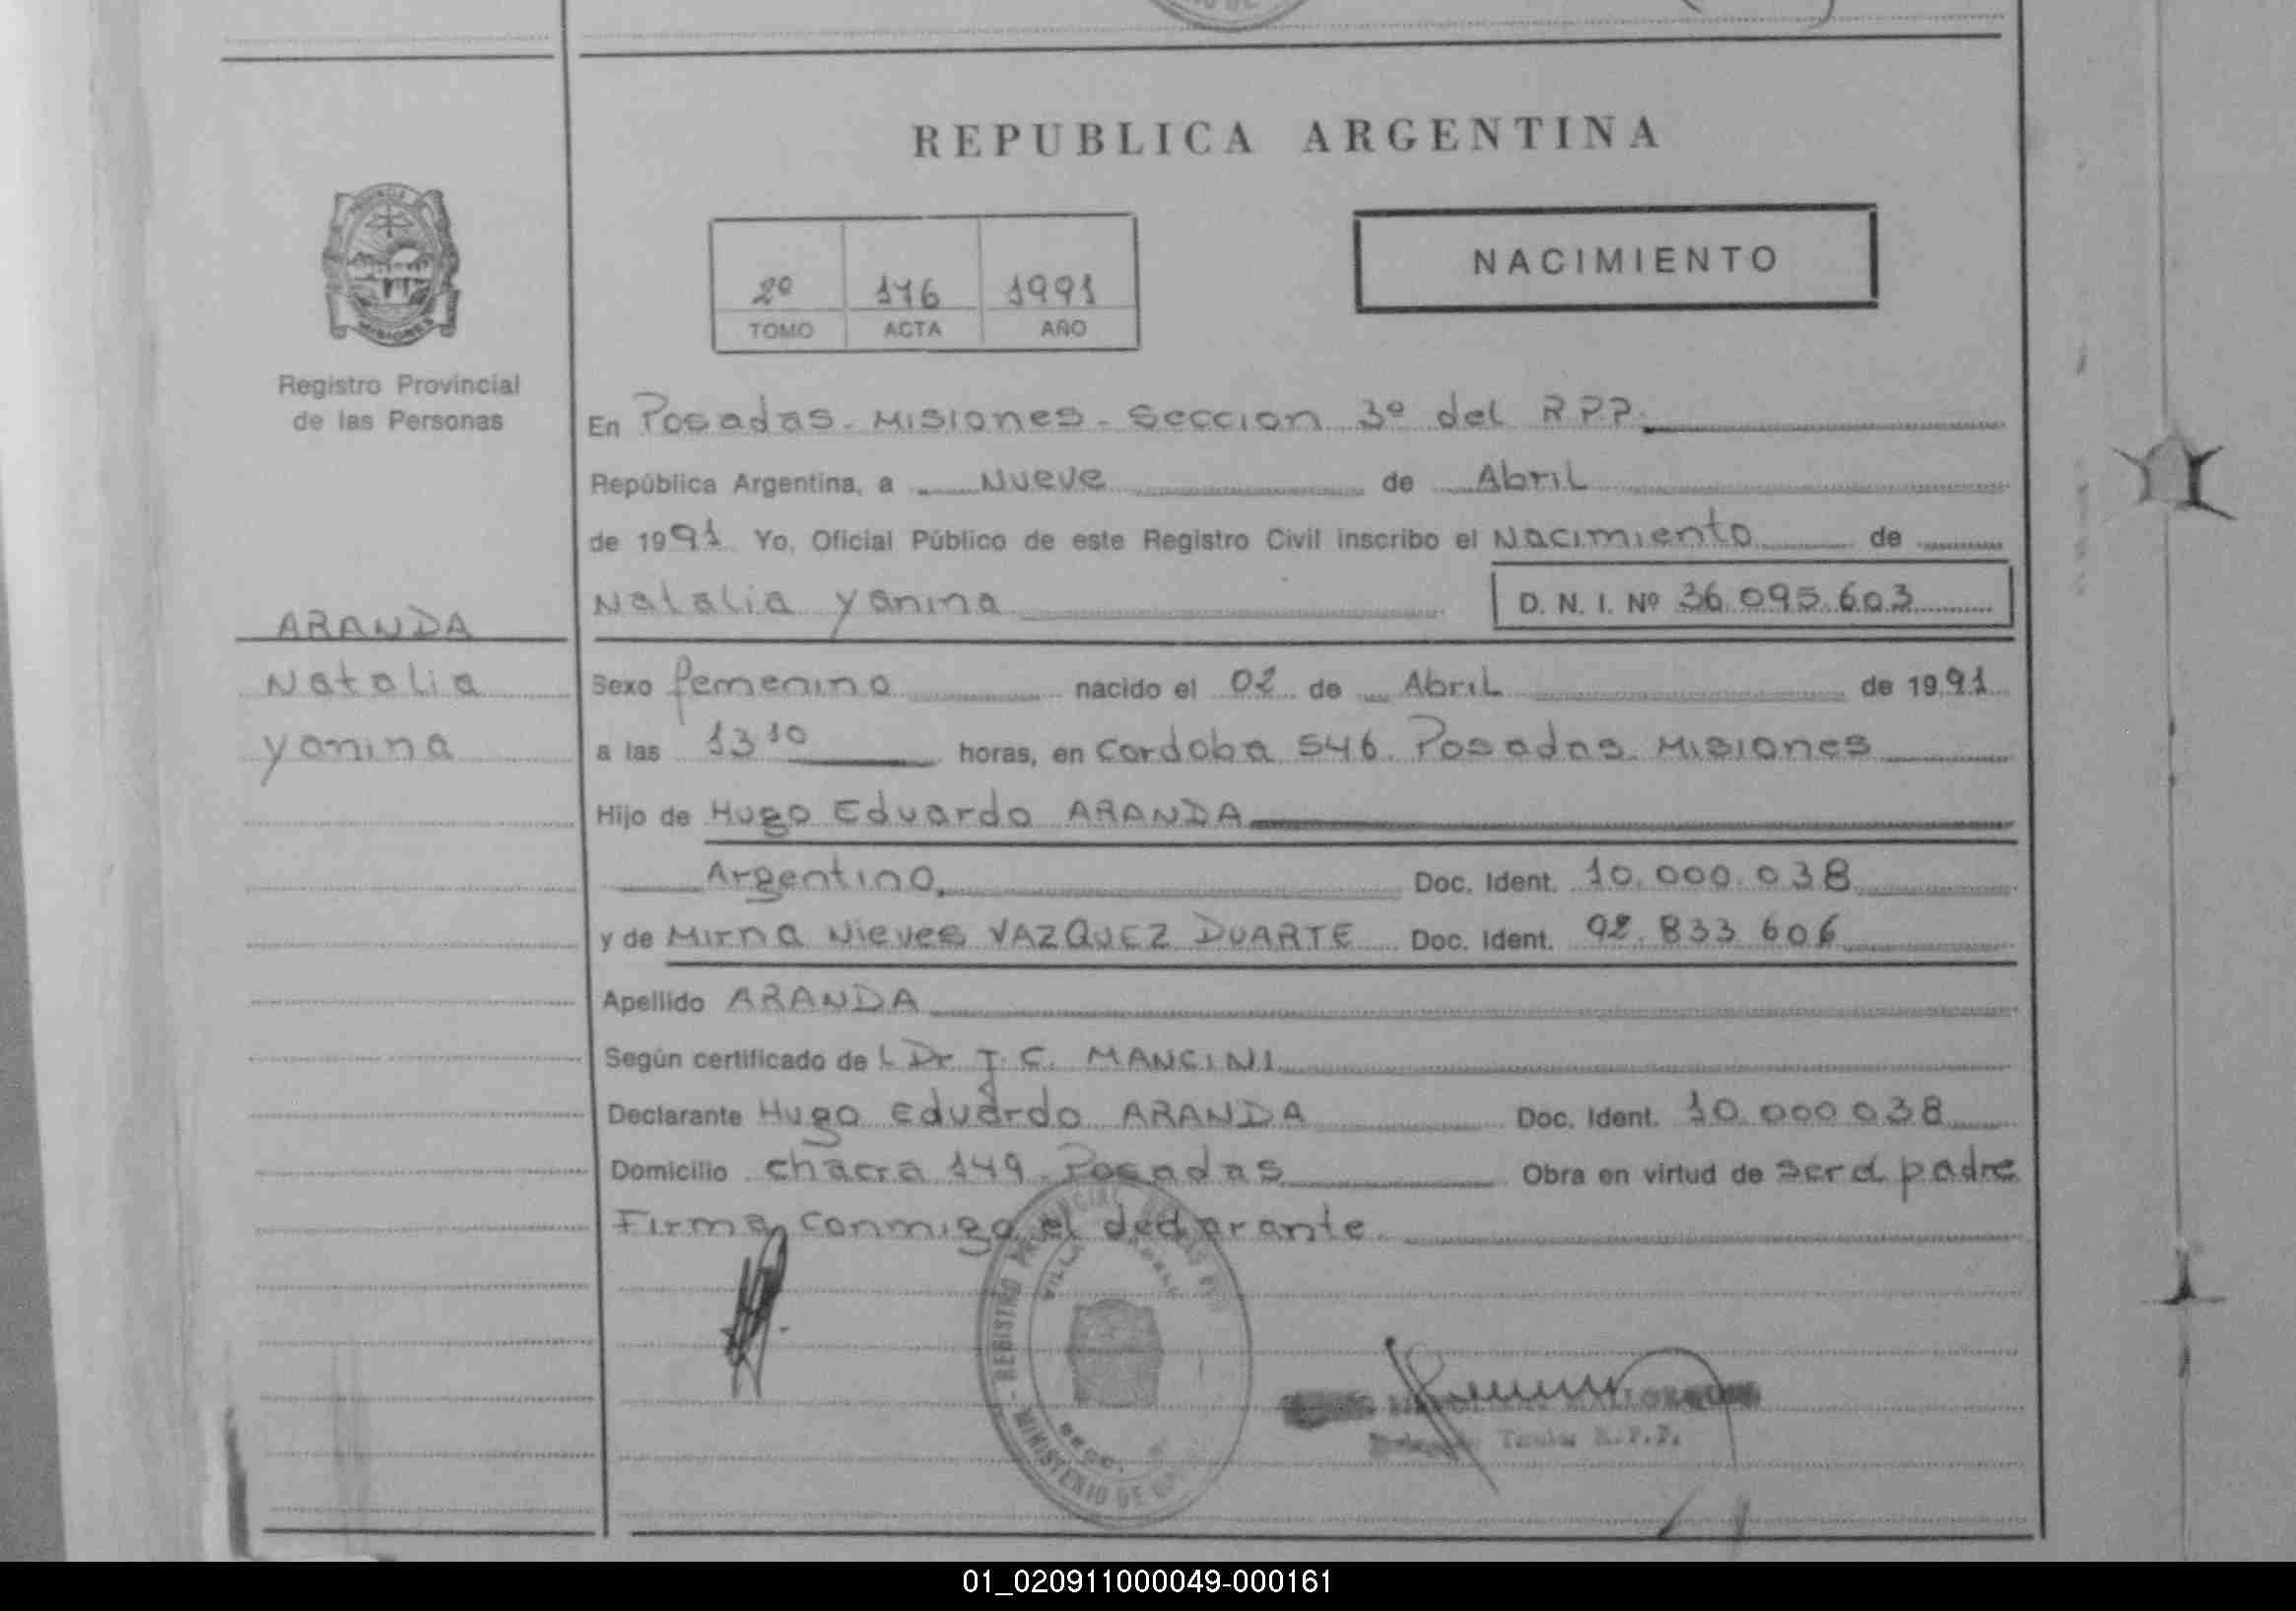 REPUBLICA ARGENTINA
NACIMIENTO
2º 176 1991
TOMO ACTA AÑO
MISIONES
Registro Provincial
de las Personas
En Posadas - Misiones - Seccion 3º del RPP.
República Argentina, a Nueve de Abril
de 1991 Yo, Oficial Público de este Registro Civil inscribo el Nacimiento de
Natalia Yanina D. N. I. Nº 36.095.603
ARANDA
Natalia
Yanina
Sexo femenino nacido el 02 de Abril de 1991
a las 13 10 horas, en Cordoba 546. Posadas. Misiones
Hijo de Hugo Eduardo ARANDA
Argentino. Doc. Ident. 10.000.038
y de Mirna Nieves VAZQUEZ DUARTE Doc. Ident. 92.833 606
Apellido ARANDA
Según certificado de L Dr J. C. MANCINI
Declarante Hugo Eduardo ARANDA Doc. Ident. 10.000 038
Domicilio chacra 149. Posadas Obra en virtud de ser el padre
Firma conmigo el declarante.
REGISTRO
VILLA
SECC.
MINISTERIO DE
Titular R.P.P.
01_020911000049-000161